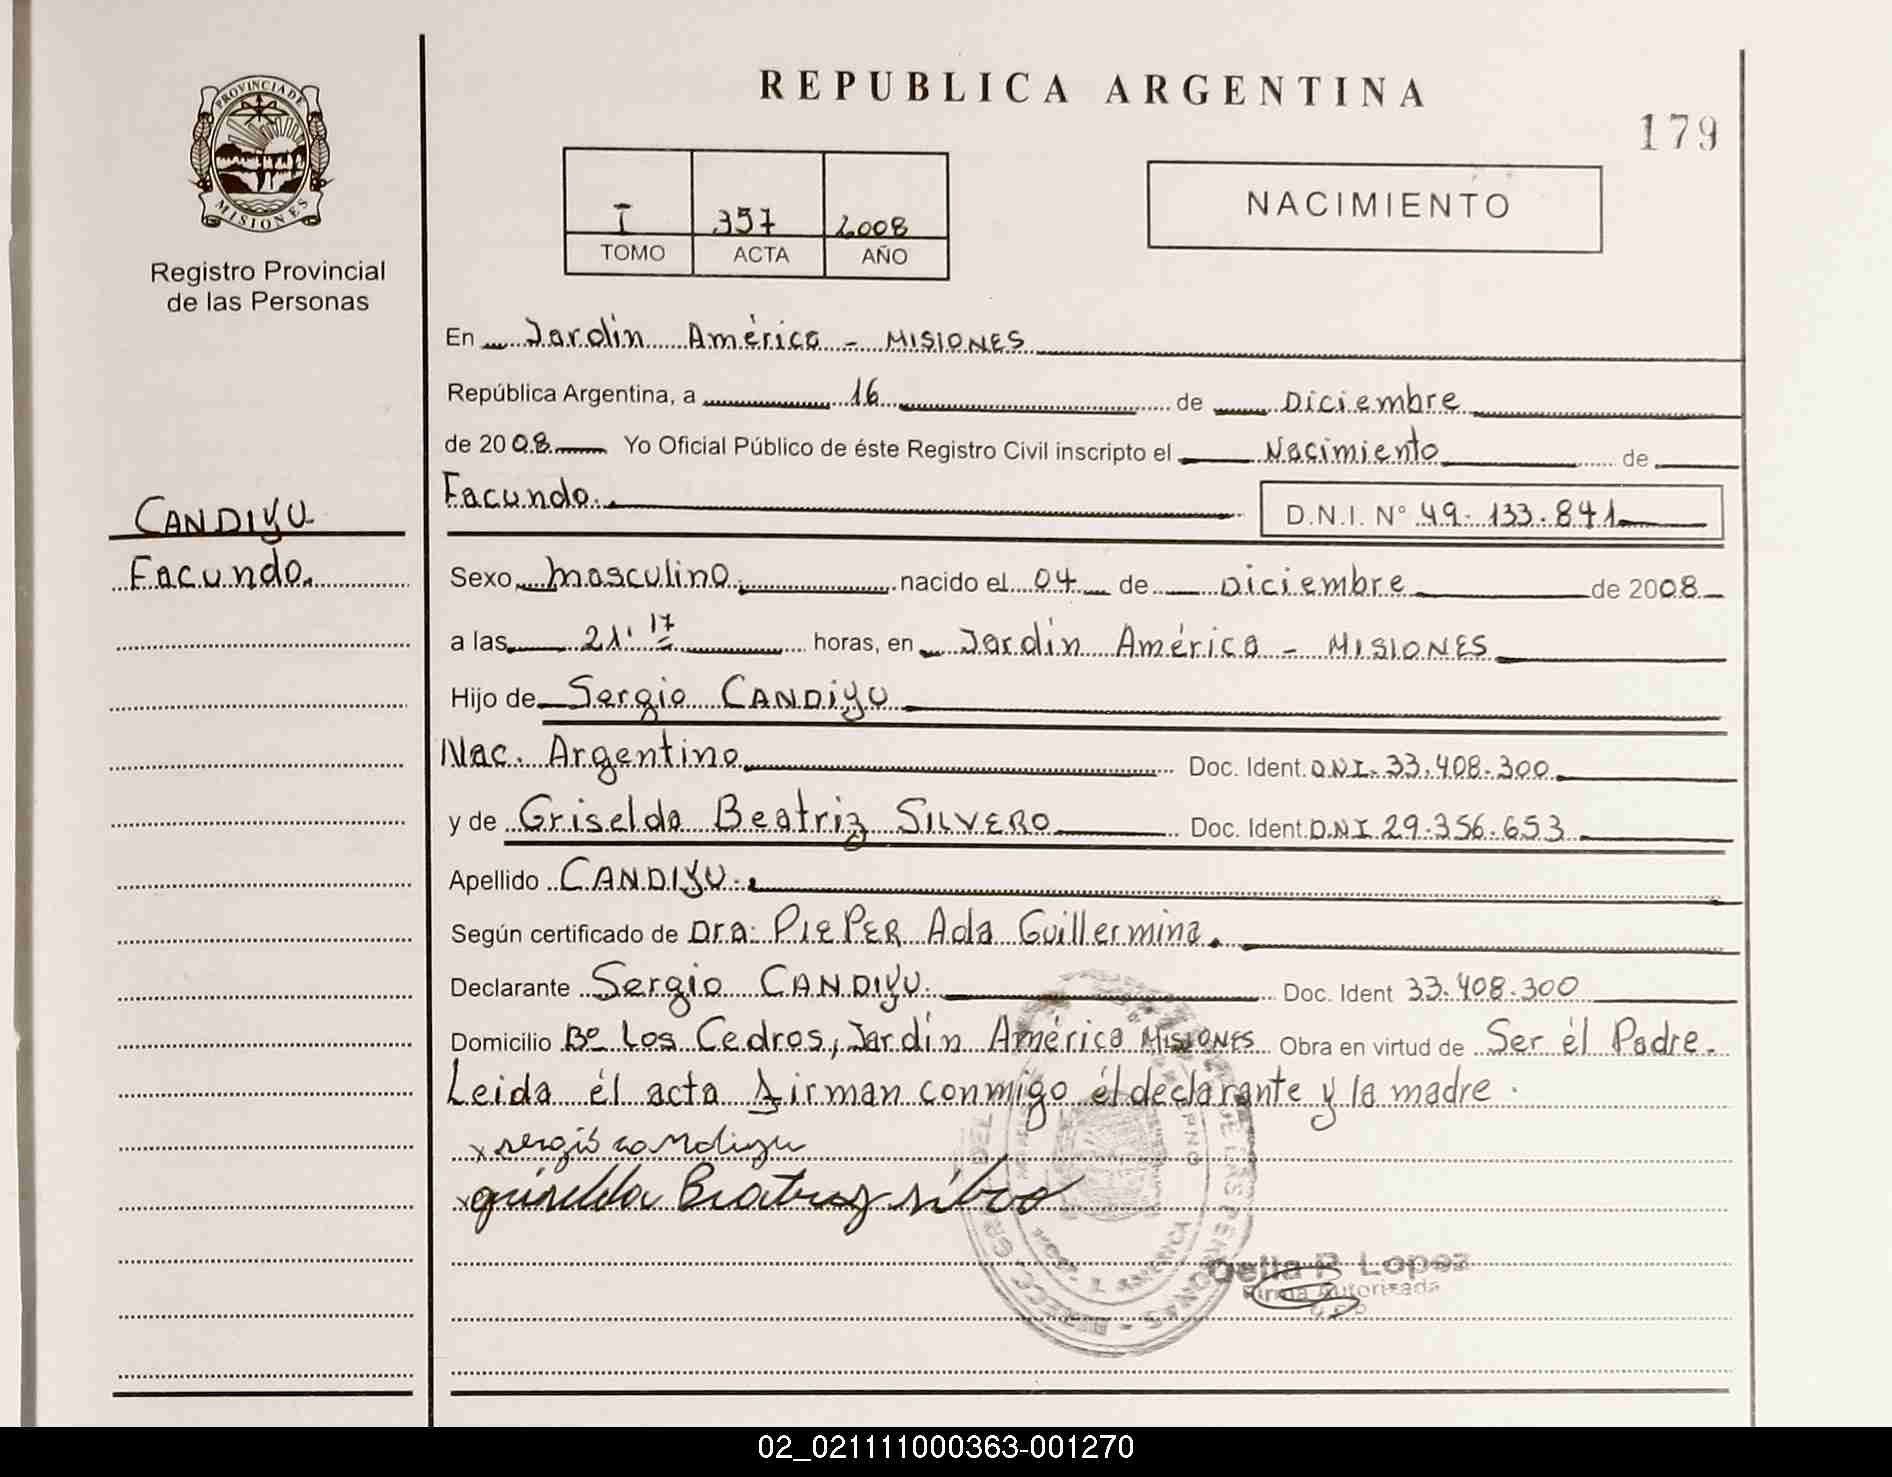 REPUBLICA ARGENTINA
179
PROVINCIA DE
MISIONES
Registro Provincial
de las Personas
I 357 2008
TOMO ACTA AÑO
NACIMIENTO
En Jardín América - MISIONES
República Argentina, a 16 de Diciembre
de 2008 Yo Oficial Público de éste Registro Civil inscripto el Nacimiento de
Facundo. D.N.I. N° 49.133.841
CANDIYU
Facundo.
Sexo masculino. nacido el 04 de Diciembre de 2008
a las 21' 17 horas, en Jardín América - MISIONES
Hijo de Sergio CANDIYU
Nac. Argentino Doc. Ident. DNI. 33.408.300
y de Griselda Beatriz SILVERO Doc. Ident. DNI 29.356.653
Apellido CANDIYU.
Según certificado de Dra: PIEPER Ada Guillermina.
Declarante Sergio CANDIYU. Doc. Ident 33.408.300
Domicilio Bº Los Cedros, Jardín América MISIONES Obra en virtud de Ser él Padre.
Leida él acta firman conmigo él declarante y la madre.
x sergio candiyu
x griselda Beatriz
Delia R. Lopez
Firma Autorizada
02_021111000363-001270